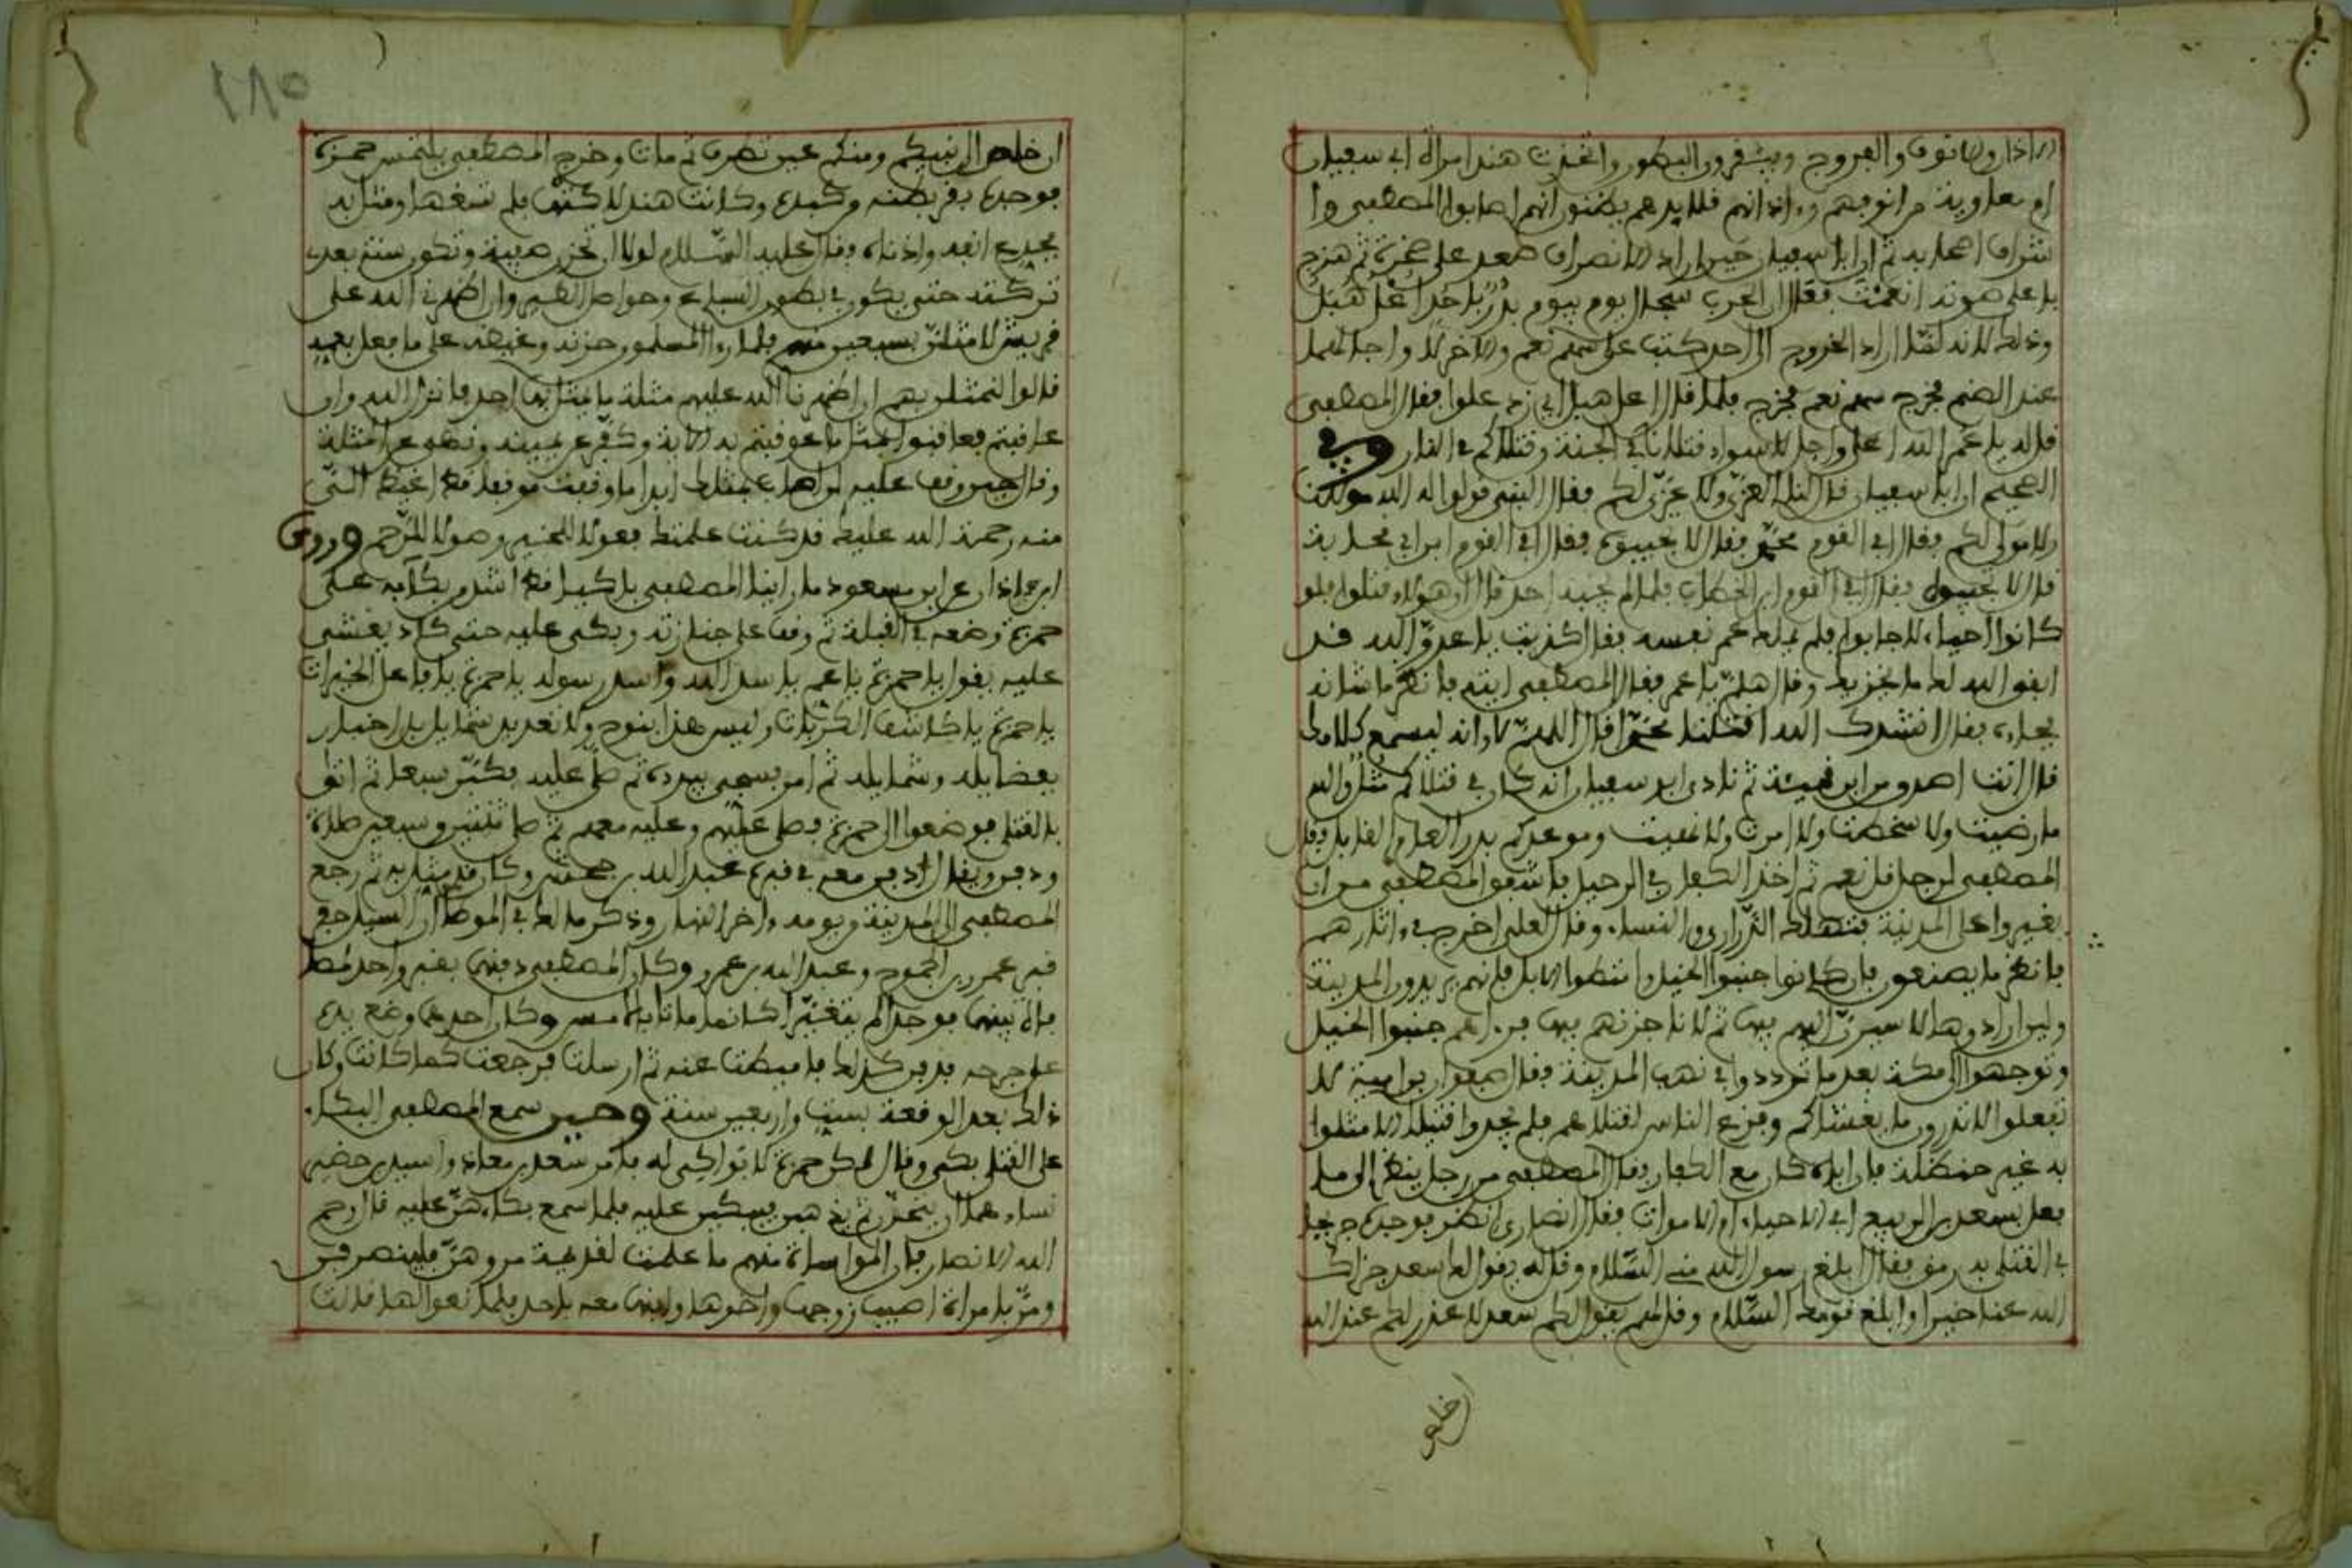 الاذان والانوف والفروج ويبقرون البطون واتخذت هند امراة ابي سفيان
ام معاوية من انوفهم واذانهم قلايدهم يظنون انهم اصابوا المصطفى وا
شراف اصحابه ثم ان ابا سفيان حين اراد الانصراف صعد على صخرة ثم صرخ
باعلى صوته انعمت فقال ان الحرب سجال يوم بيوم بدر باحد اعل هبل
وذلك لانه لما اراد الخروج الى احد كتب على سهم نعم والاخر لا واجالهما
عند الصنم فخرج سهم نعم فخرج فلما قال اعل هبل اي زد علوا فقال المصطفى
قل له يا عمر الله اعلى واجل لا سواء قتلانا في الجنة وقتلاكم في النار وفي
الصحيح ان ابا سفيان قال لنا العزى ولا عزى لكم فقال النبي قولوا له الله مولانا
ولا مولى لكم فقال افي القوم محمد فقال لا تجيبوه فقال افي القوم ابن ابي قحافة
قال لا تجيبوه فقال افي القوم ابن الخطاب فلما لم يجبه احد قال ان هؤلاء قتلوا فلو
كانوا احياء لاجابوا فلم يملك عمر نفسه فقال كذبت يا عدو الله قد
ابقى الله لك ما يخزيك وقال هلم يا عمر فقال المصطفى ايته فانظر ما شانه
فجاءه فقال انشدك الله اقتلنا محمدا قال اللهم لا وانه ليسمع كلامك
قال انت اصدق من ابن قميئة ثم نادى ابو سفيان انه كان في قتلاكم مثل والله
ما رضيت ولا سخطت ولا امرت ولا نهيت وموعدكم بدر العام القابل فقال
المصطفى لرجل قل نعم ثم اخذ الكفار في الرحيل فاشفق المصطفى من ان
يغيروا على المدينة فتهلك الذراري والنساء وقال لعلي اخرج في اثارهم
فانظر ما يصنعون فان كانوا جنبوا الخيل وامتطوا الابل فانهم يريدون المدينة
ولئن ارادوها لاسيرن اليهم فيها ثم لاناجزنهم فيها فراهم جنبوا الخيل
وتوجهوا الى مكة بعد ما ترددوا في نهب المدينة فقال صفوان بن امية لا
تفعلوا لا تدرون ما يغشاكم وفزع الناس لقتلاهم فلم يجدوا قتيلا الا مثلوا
به غير حنظلة فان اباه كان مع الكفار فقال المصطفى من رجل ينظر الى ما
فعل سعد بن الربيع افي الاحياء ام الاموات فقال انصاري انظر فوجده جريحا
في القتلى به رمق فقال ابلغ رسول الله مني السلام وقل له يقول لك سعد جزاك
الله عنا خيرا وابلغ قومك السلام وقل لهم يقول لكم سعد لا عذر لكم عند الله
ان خلص
١٨٥
ان خلص الى نبيكم ومنكم عين تطرف ثم مات وخرج المصطفى يلتمس حمزة
فوجده بقر بطنه وكبده وكانت هند لاكتها فلم تسغها ومثل به
فجدع انفه واذناه وقال عليه السلام لولا ان تحزن صفية وتكون سنة بعدي
تركته حتى يكون في بطون السباع وحواصل الطير وان اظهرني الله على
قريش لامثلن بسبعين منهم فلما راى المسلمون حزنه وغيظه على ما فعل بعمه
قالوا لنمثلن بهم ان اظهرنا الله عليهم مثلة ما مثل بها احد فانزل الله وان
عاقبتم فعاقبوا بمثل ما عوقبتم به الاية وكفر عن يمينه ونهى عن المثلة
وقال حين وقف عليه لن اصاب بمثلك ابدا ما وقفت موقفا قط اغيظ الي
منه رحمة الله عليك قد كنت علمتك فعولا للخير وصولا للرحم وروى
ابن شاذان عن ابن مسعود ما راينا المصطفى باكيا قط اشد من بكائه على
حمزة وضعه في القبلة ثم وقف على جنازته وبكى عليه حتى كاد يغشى
عليه يقول يا حمزة يا عم يا اسد الله واسد رسوله يا حمزة يا فاعل الخيرات
يا حمزة يا كاشف الكربات وليس هذا بنوح ولا تعديد شمايل بل اخبار
بفضايله وشمايله ثم امر فسجي ببردة ثم صلى عليه فكبر سبعا ثم اتي
بالقتلى فوضعوا الى حمزة فصلى عليهم وعليه معهم ثم صلى ثنتين وسبعين صلاة
ودفن ويقال دفن معه في قبره عبد الله بن جحش وكان قد مثل به ثم رجع
المصطفى الى المدينة من يومه واخر النهار وذكر مالك في الموطا ان السيل حفر
قبر عمرو بن الجموح وعبد الله بن عمرو وكان المصطفى دفنهما بقبر واحد
فوجدا لم يتغيرا كانما ماتا بالامس وكان احدهما وضع يده
على جرحه فدفن كذلك فاميطت عنه ثم ارسلت فرجعت كما كانت وكان
ذلك بعد الوقعة بست واربعين سنة وحين سمع المصطفى البكاء
على القتلى بكى وقال لكن حمزة لا بواكي له فامر سعد بن معاذ واسيد بن حضير
نساءهما ان يتحزمن ثم يذهبن يبكين عليه فلما سمع بكاءهن عليه قال رحم
الله الانصار فان المواساة منهم ما علمت لقديمة مروهن فلينصرفن
ومر بامراة اصيب زوجها واخوها وابنها معه باحد فلما نعوا لها قالت